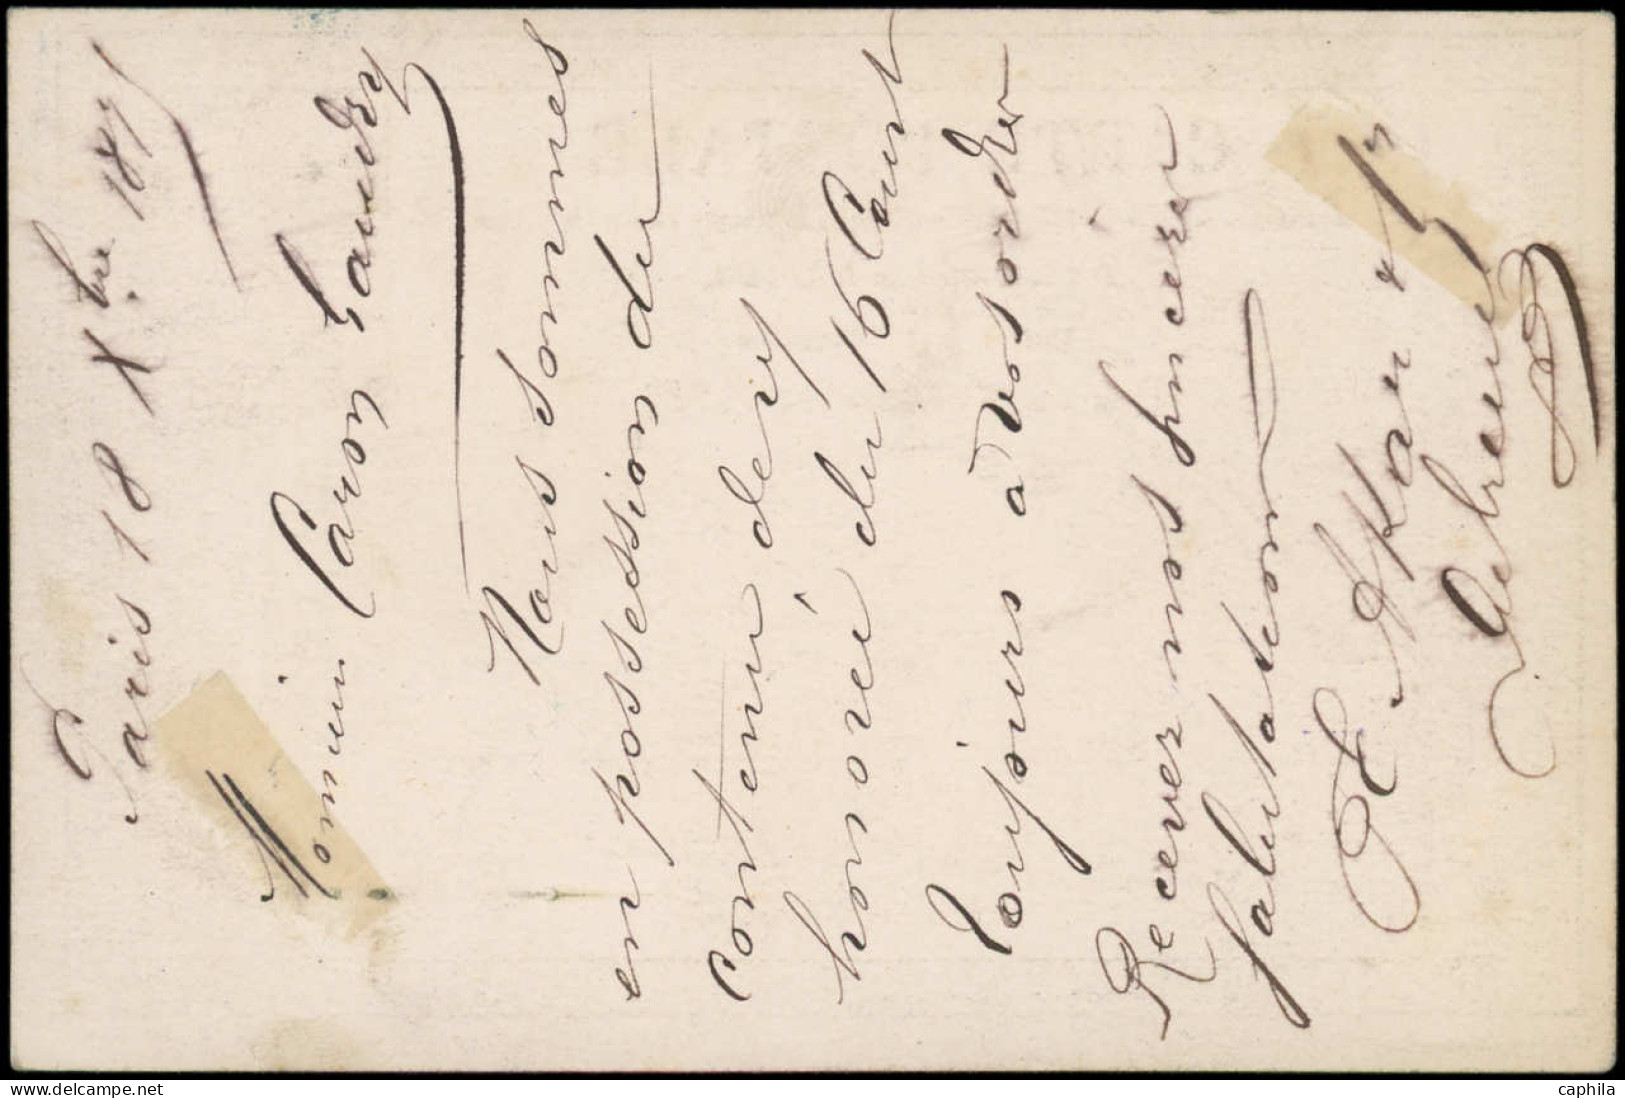 Paris 18 Xbre 187
Monsieur Caron Gaudry
Nous sommes
en possession du
contenu de vy
honoré du 16 Court
Toujours à vos ordres
Recevez nos sincères
salutations
E
caphila